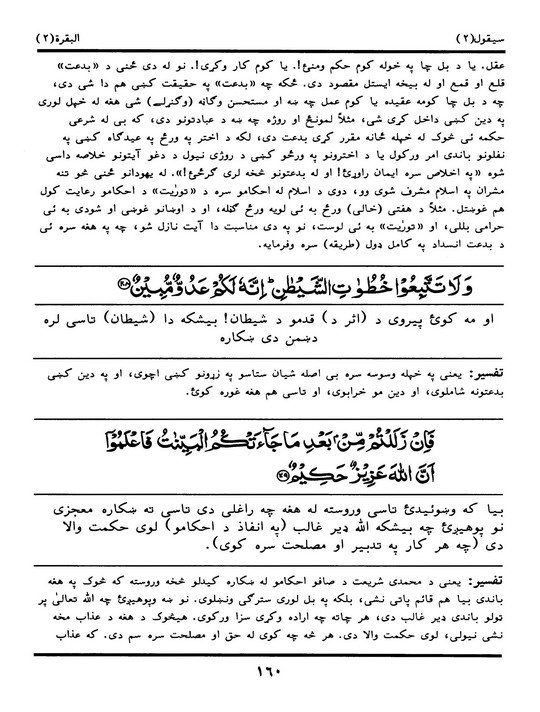 سيقول(٢) البقرة(٢)
عقل. يا د بل چا په خوله كوم حكم ومنئ!. يا كوم كار وكړی!. نو له دې ځنې د «بدعت»
قلع او قمع او له بيخه ايستل مقصود دی. ځكه چه «بدعت» په حقيقت كښې هم دا شی دی،
چه د بل چا كومه عقيده يا كوم عمل چه ښه او مستحسن وګاڼه (وګڼلی) شی هغه له خپل لوری
په دين كښې داخل كړی شی، مثلاً لمونځ او روژه چه ښه د عبادتونو دی، كه بی له شرعی
حكمه ئی څوک له خپله ځانه مقرر كړی بدعت دی، لكه د اختر په ورځ په عيدگاه كښې په
نفلونو باندې امر وركول يا د اخترونو په ورځو كښې د روژی نيول د دغو آيتونو خلاصه داسې
شوه «په اخلاص سره ايمان راوړئ! او له بدعتونو څخه لری ګرځئ!». له يهودانو ځنې څو تنه
مشران په اسلام مشرف شوی وو، دوی د اسلام له احكامو سره د «تورٰيت» د احكامو رعايت كول
هم غوښتل. مثلاً د هفتې (خالی) ورځ به ئی لويه ورځ ګڼله، او د اوښانو غوښې او شودې به ئی
حرامې بللې، او «تورٰيت» به ئی لوست، نو په دی مناسبت دا آيت نازل شو، چه په هغه سره ئی
د بدعت انسداد په كامل ډول (طريقه) سره وفرمايه.
وَلَا تَتَّبِعُوْا خُطُوٰتِ الشَّيْطٰنِ ۚ اِنَّهٗ لَكُمْ عَدُوٌّ مُّبِيْنٌ ﴿۲۰۸﴾
او مه كوئ پيروی د (اثر د) قدمو د شيطان! بيشكه دا (شيطان) تاسی لره
دښمن دی ښكاره
تفسير: يعنی په خپله وسوسه سره بی اصله شيان ستاسو په زړونو كښې اچوی، او په دين كښې
بدعتونه شاملوی، او دين مو خرابوی، او تاسی هم هغه غوره كوئ.
فَاِنْ زَلَلْتُمْ مِّنْۢ بَعْدِ مَا جَآءَتْكُمُ الْبَيِّنٰتُ فَاعْلَمُوْٓا
اَنَّ اللّٰهَ عَزِيْزٌ حَكِيْمٌ ﴿۲۰۹﴾
بيا كه وښوئيدئ تاسی وروسته له هغه چه راغلې دی تاسی ته ښكاره معجزې
نو پوهيږئ چه بيشكه الله ډير غالب (په انفاذ د احكامو) لوی حكمت والا دی
دی (چه هر كار په تدبير او مصلحت سره كوی).
تفسير: يعنی د محمدی شريعت د صافو احكامو له ښكاره كيدلو څخه وروسته كه څوک په هغه
باندې بيا هم قائم پاتی نشی، بلكه په بل لوری سترګې ونښلوی. نو ښه وپوهيږئ چه الله تعالیٰ پر
ټولو باندې ډير غالب دی، هر چاته چه اراده وكړی سزا وركوی. هيڅوک د هغه د عذاب مخه
نشی نيولی، لوی حكمت والا دی. هر څه چه كوی له حق او مصلحت سره سم دی. كه عذاب
١٦٠